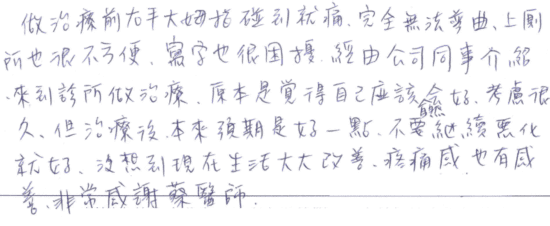 做治療前右手大姆指碰到就痛、完全無法彎曲、上厠
所也很不方便、寫字也很困擾、經由公司同事介紹
來到診所做治療、原本是覺得自己應該會好、考慮很
久、但治療後、本來預期是好一點、不要繼續惡化
就好、沒想到現在生活大大改善、疼痛感也有感
善、非常感謝蔡醫師.